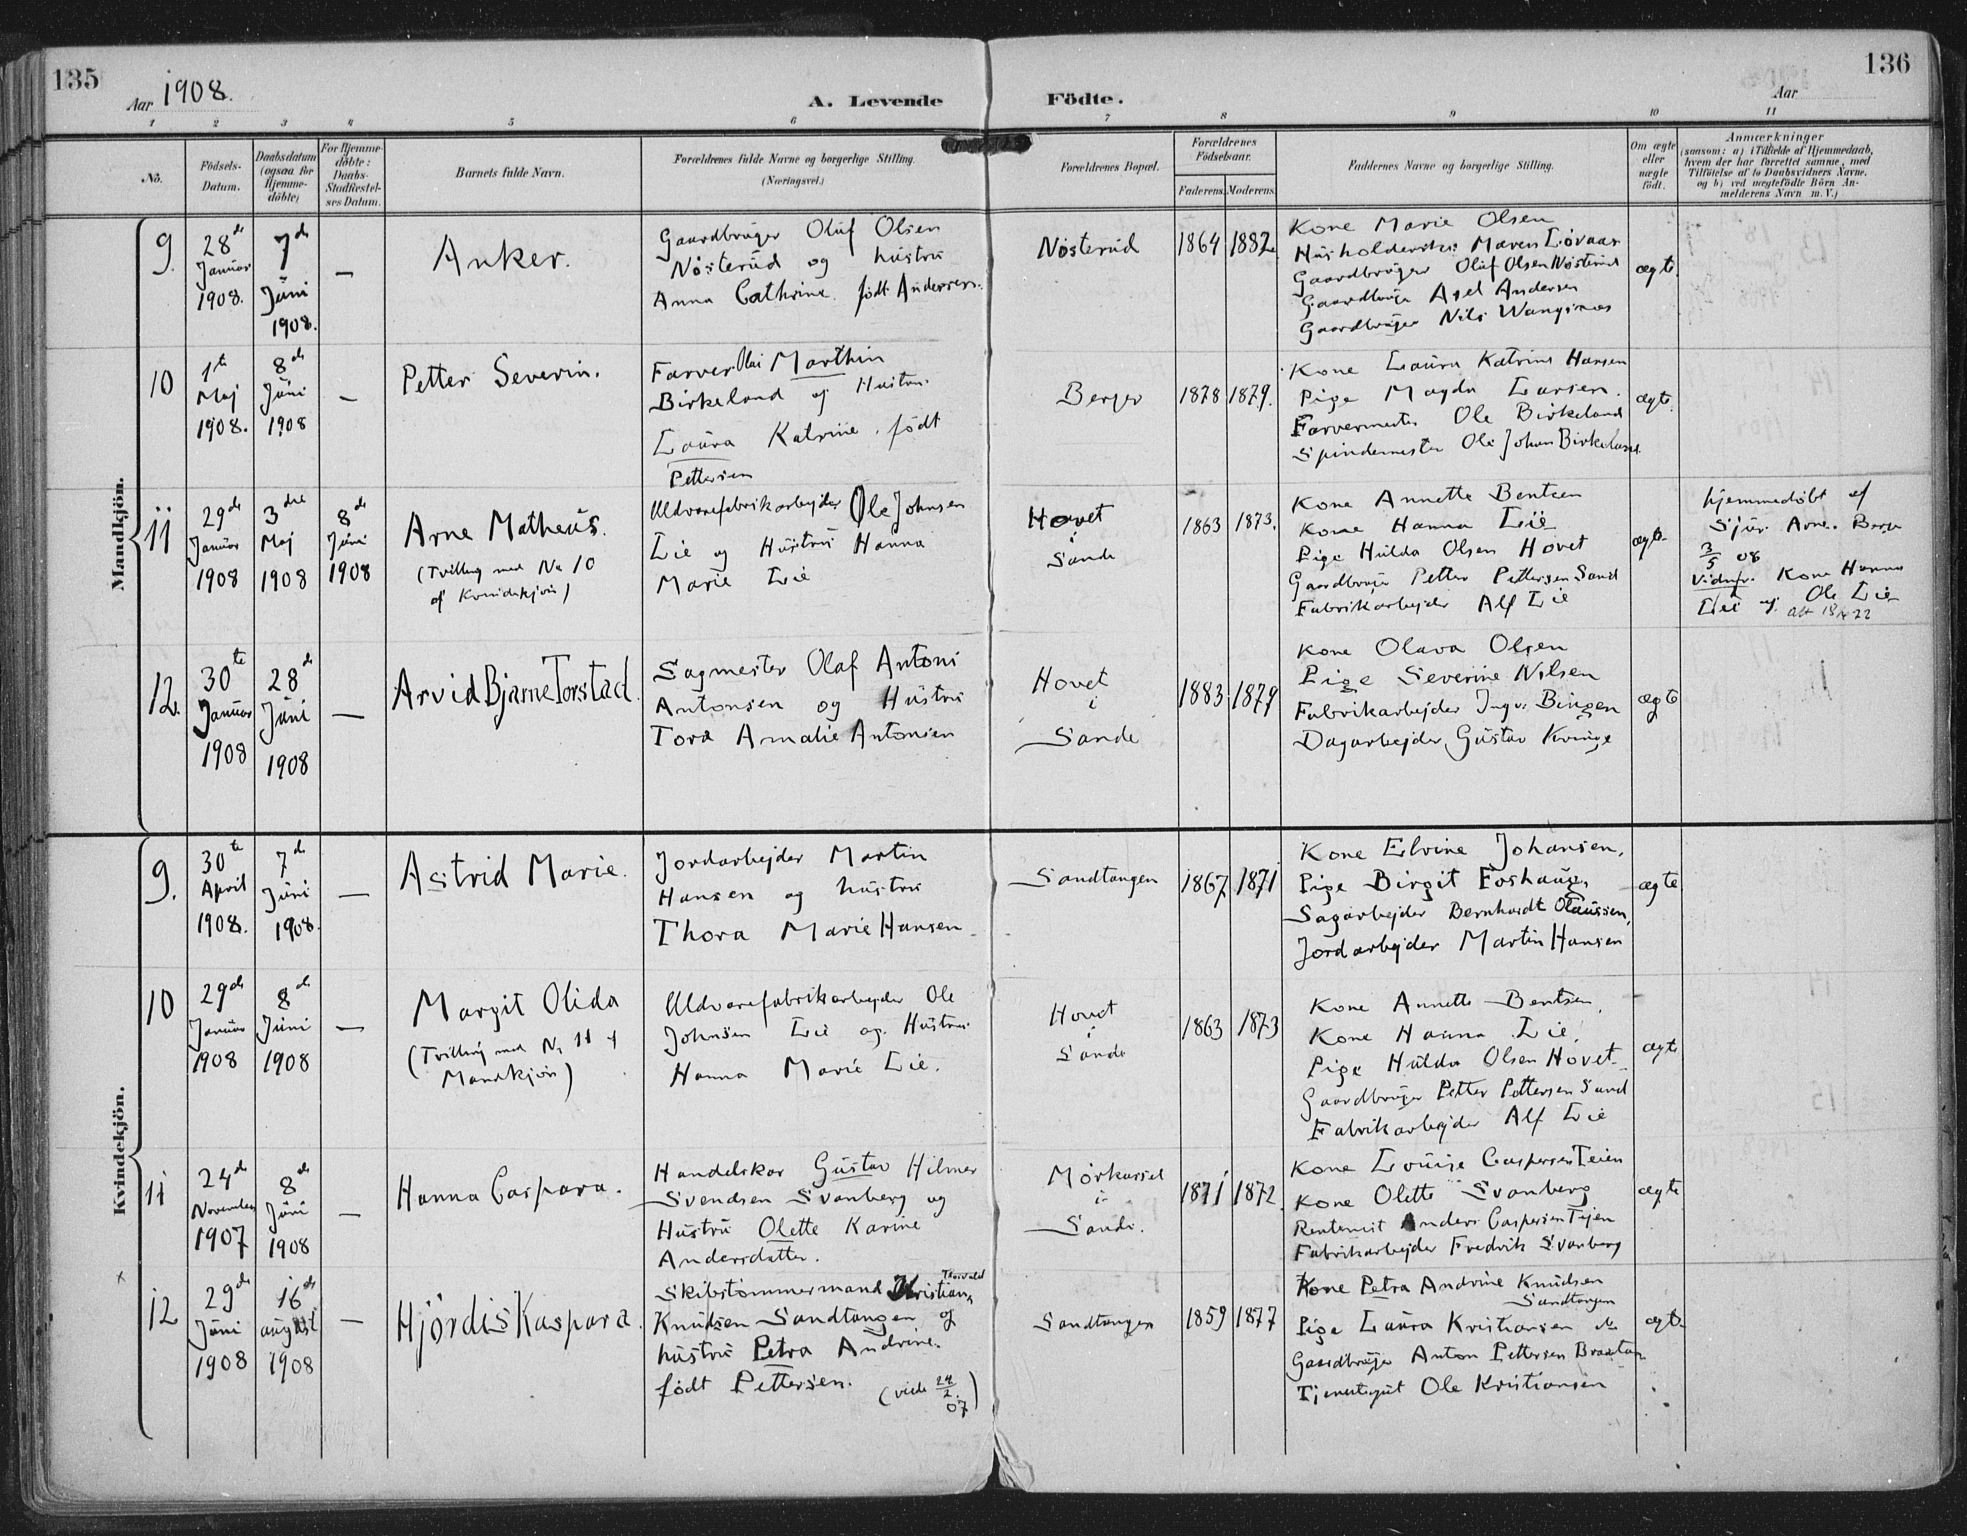 135
Aar 1908.
A. Levende
Födte.
Aar
136
1 2 3 4 5 6 7 8 9 10 11
No.
Födsels-
Datum.
Daabsdatum
(ogsaa for
Hjemme-
döbte)
For Hjemme-
döbte:
Daabs-
Stadfæstel-
ses Datum.
Barnets fulde Navn.
Forældrenes fulde Navne og borgerlige Stilling.
(Næringsvei.)
Forældrenes Bopæl.
Forældrenes
Födselsaar.
Faderens. Moderens.
Faddernes Navne og borgerlige Stilling.
Om ægte
eller
uægte
födt.
Anmærkninger
(saasom: a) i Tilfælde af Hjemmedaab,
hvem der har forrettet samme, med
Tilföielse af to Daabsvidners Navne,
og b) ved uægtefödte Börn An-
melderens Navn m. V.)
Mandkjön.
9.
28de
Januar
1908.
7de
Juni
1908.
—
Anker.
Gaardbruger Oluf Olsen
Nösterud og hustru
Anna Cathrine født Andersen.
Nösterud
1864 1882
Kone Marie Olsen
Husholderske Maren Lövaas
Gaardbruger Oluf Olsen Nösterud
Gaardbruger Axel Andersen
Gaardbruger Nils Wangsnes
ægte
10
1te
Maj
1908.
8de
Juni
1908
—
Petter Severin.
Farver Olai Marthin
Birkeland og Hustru
Laura Katrine født
Pettersen
Berger
1878 1879.
Kone Laura Katrine Hansen
Pige Magda Larsen.
Farvermester Ole Birkeland
Spindemester Ole Johan Birkeland
ægte.
11
29de
Januar
1908
3die
Maj
1908
8de
Juni
1908
Arne Matheus.
(Tvilling med No 10
af Kvindekjön)
Uldvarefabrikarbejder Ole Johnsen
Lie og Hustru Hanna
Marie Lie
Hovet
i
Sande
1863 1873.
Kone Annette Bentsen
Kone Hanna Lie
Pige Hulda Olsen Hovet
Gaardbruger Petter Pettersen Sand
Fabrikarbejder Alf Lie
ægte
hjemmedöbt af
Arne Berge
3/5 08
Kone Hanna
Lie og Ole Lie
12.
30te
Januar
1908
28de
Juni
1908
—
Arvid Bjarne Torstad.
Sagmester Olaf Antoni
Antonsen og Hustru
Tora Amalie Antonsen
Hovet
i
Sande
1883 1879
Kone Olava Olsen
Pige Severine Nilsen
Fabrikarbejder Ingv. Bingen
Dagarbejder Gustav Kringe
ægte
Kvindekjön.
9.
30te
April
1908.
7de
Juni
1908.
—
Astrid Marie.
Jordarbejder Martin
Hansen og hustru
Thora Marie Hansen
Sandtangen
1867 1871
Kone Elvine Johansen,
Pige Birgit Foshaug,
Sagarbejder Bernhardt Olaussen,
Jordarbejder Martin Hansen
ægte
10
29de
Januar
1908
8de
Juni
1908
—
Margit Olida
(Tvilling med No 11 af
Mandkjön)
Uldvarefabrikarbejder Ole
Johnsen Lie og Hustru
Hanna Marie Lie.
Hovet
i
Sande
1863 1873
Kone Annette Bentsen,
Kone Hanna Lie,
Pige Hulda Olsen Hovet
Gaardbruger Petter Pettersen Sand
Fabrikarbejder Alf Lie
ægte
11
24de
November
1907
8de
Juni
1908
—
Hanna Caspara.
Handelskar Gustav Hilmer
Svendsen Svanberg og
Hustru Olette Karine
Andersdatter.
Mörkassel
i
Sande.
1871 1872.
Kone Louise Caspersen Teien
Kone Olette Svanberg
Rentenist Anders Caspersen Tejen
Fabrikarbejder Fredrik Svanberg
ægte
x
12
29de
Juni
1908
16de
august
1908
—
Hjördis Kaspara.
Skibstømmermand Kristian Thorvald
Knudsen Sandtangen og
hustru Petra Andrine.
født Pettersen. (vide 24/2 07)
Sandtangen
1859 1877
Kone Petra Andrine Knudsen
Sandtangen
Pige Laura Kristiansen do
Gaardbruger Anton Pettersen Braatan
Tjenestegut Ole Kristiansen
ægte